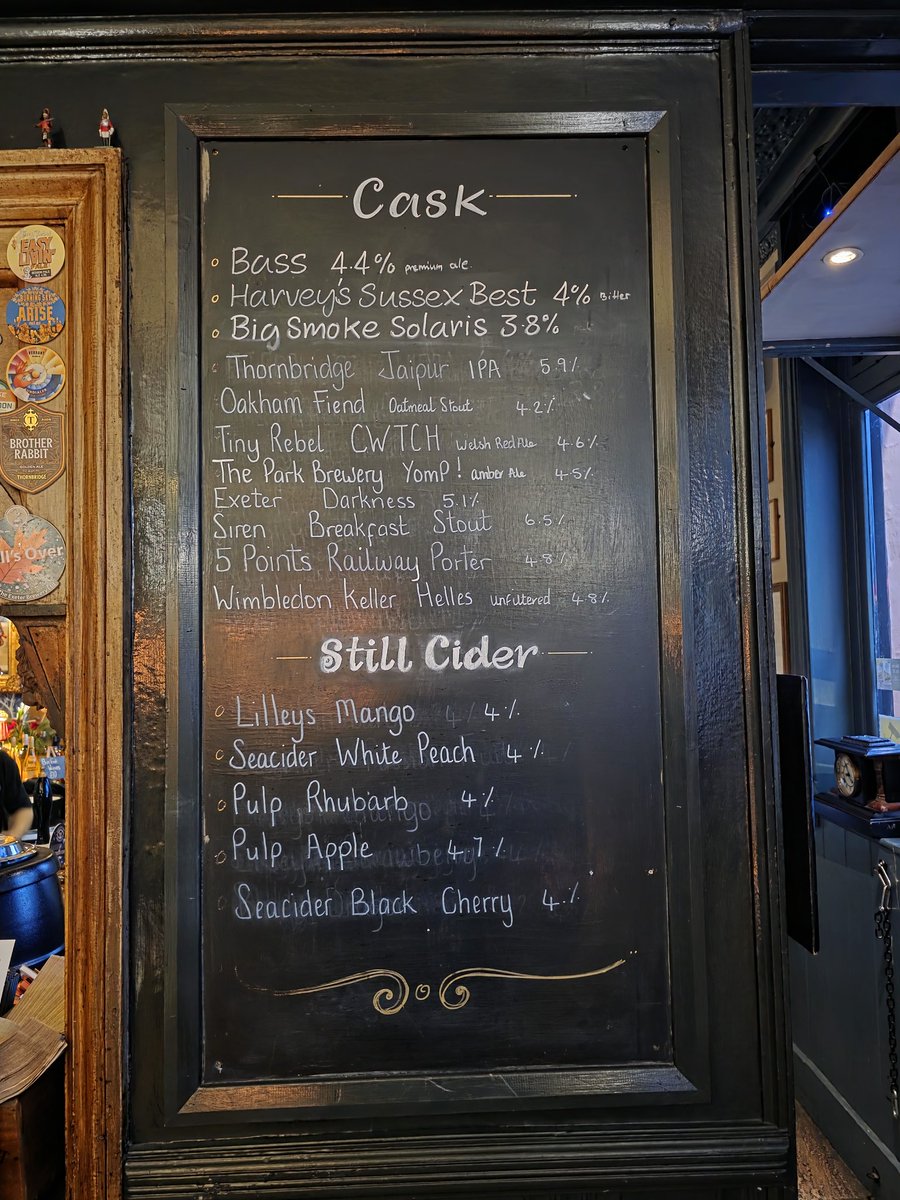 Cask
Bass 4.4% premium ale.
Harvey's Sussex Best 4% Bitter
Big Smoke Solaris 3.8%
Thornbridge Jaipur IPA 5.9%
Oakham Fiend Oatmeal Stout 4.2%
Tiny Rebel CWTCH Welsh Red Ale 4.6%
The Park Brewery YomP! amber Ale 4.5%
Exeter Darkness 5.1%
Siren Breakfast Stout 6.5%
5 Points Railway Porter 4.8%
Wimbledon Keller Helles unfiltered 4.8%
Still Cider
Lilleys Mango 4%
Seacider White Peach 4%
Pulp Rhubarb 4%
Pulp Apple 4.7%
Seacider Black Cherry 4%
EASY
LIVIN'
ARISE
BROTHER
RABBIT
GOLDEN ALE
THORNBRIDGE
ll's Over